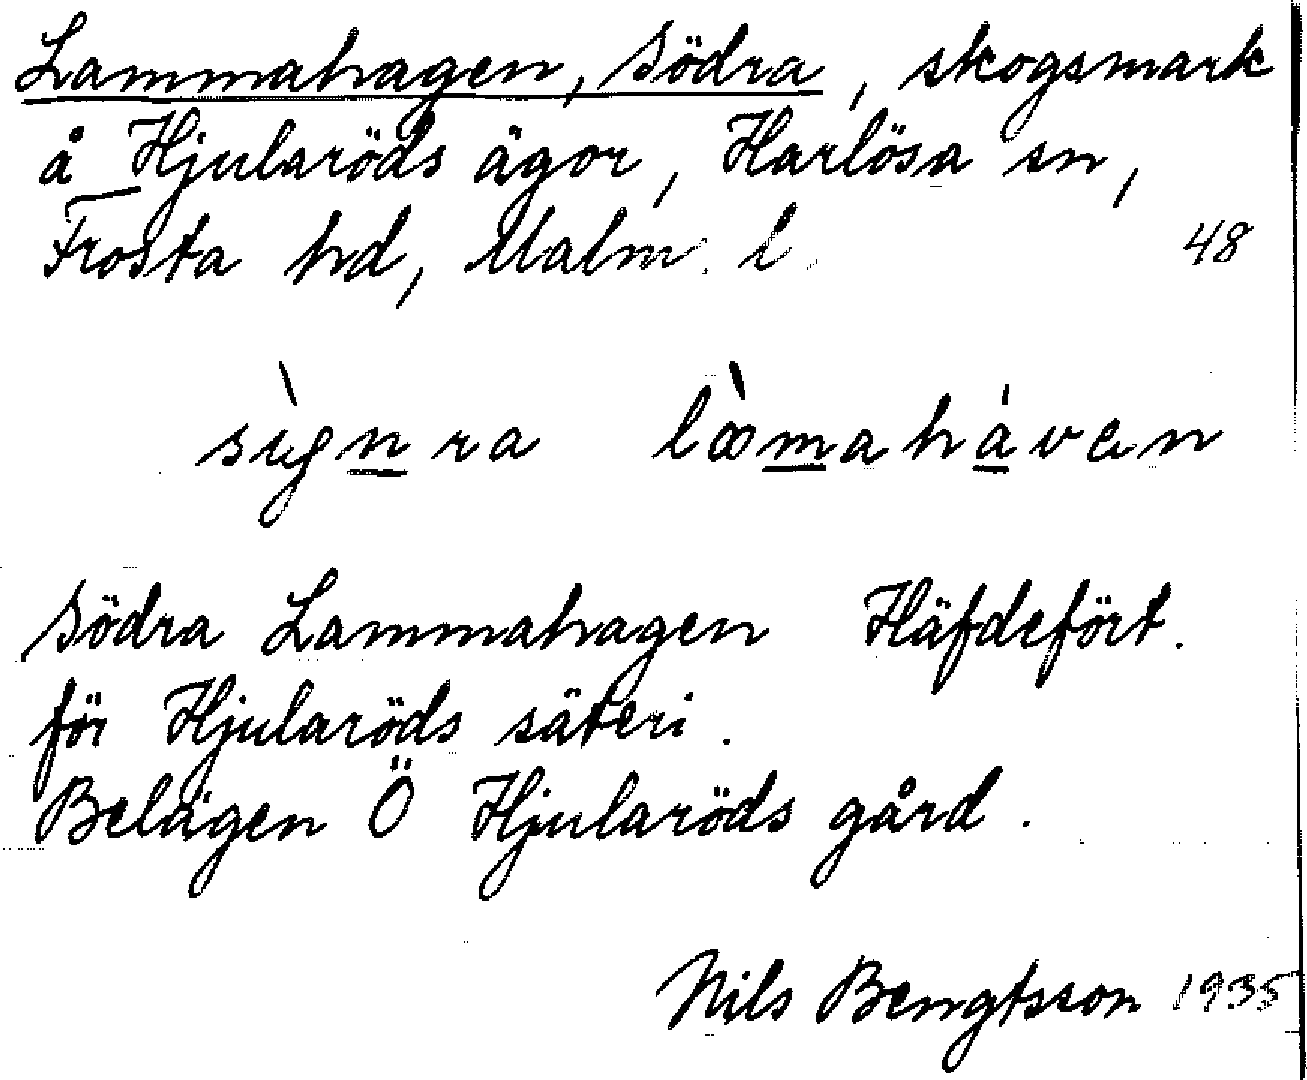 Lammahagen, Södra, skogsmark
å Hjularöds ägor, Harlösa sn,
Frosta hd, Malm. l. 48
Södra Lammahagen Häfdefört.
för Hjularöds säteri.
Belägen Ö Hjularöds gård.
Nils Bengtsson 1935